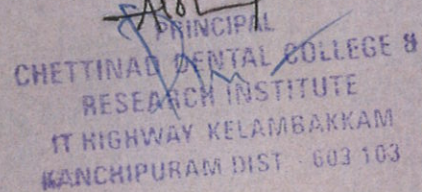 PRINCIPAL
CHETTINAD DENTAL COLLEGE &
RESEARCH INSTITUTE
IT HIGHWAY KELAMBAKKAM
KANCHIPURAM DIST - 603 103